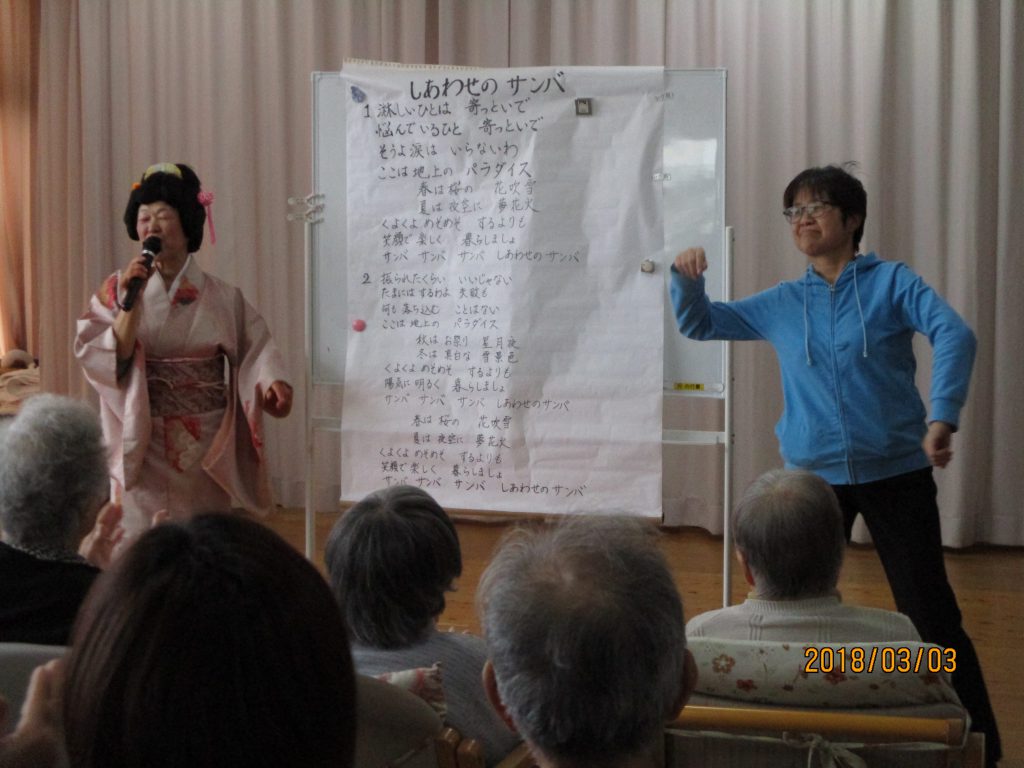 しあわせの サンバ
1 淋しいひとは 寄っといで
悩んでいるひと 寄っといで
そうよ涙は いらないわ
ここは地上の パラダイス
春は桜の 花吹雪
夏は夜空に 夢花火
くよくよめそめそ するよりも
笑顔で楽しく 暮らしましょ
サンバ サンバ サンバ しあわせのサンバ
2 振られたくらい いいじゃない
たまにはするわよ 失敗も
何も落ち込む ことはない
ここは地上の パラダイス
秋はお祭り 星月夜
冬は真白な 雪景色
くよくよめそめそ するよりも
陽気に明るく 暮らしましょ
サンバ サンバ サンバ しあわせのサンバ
春は桜の 花吹雪
夏は夜空に 夢花火
くよくよめそめそ するよりも
笑顔で楽しく 暮らしましょ
サンバ サンバ サンバ しあわせのサンバ
2018/03/03